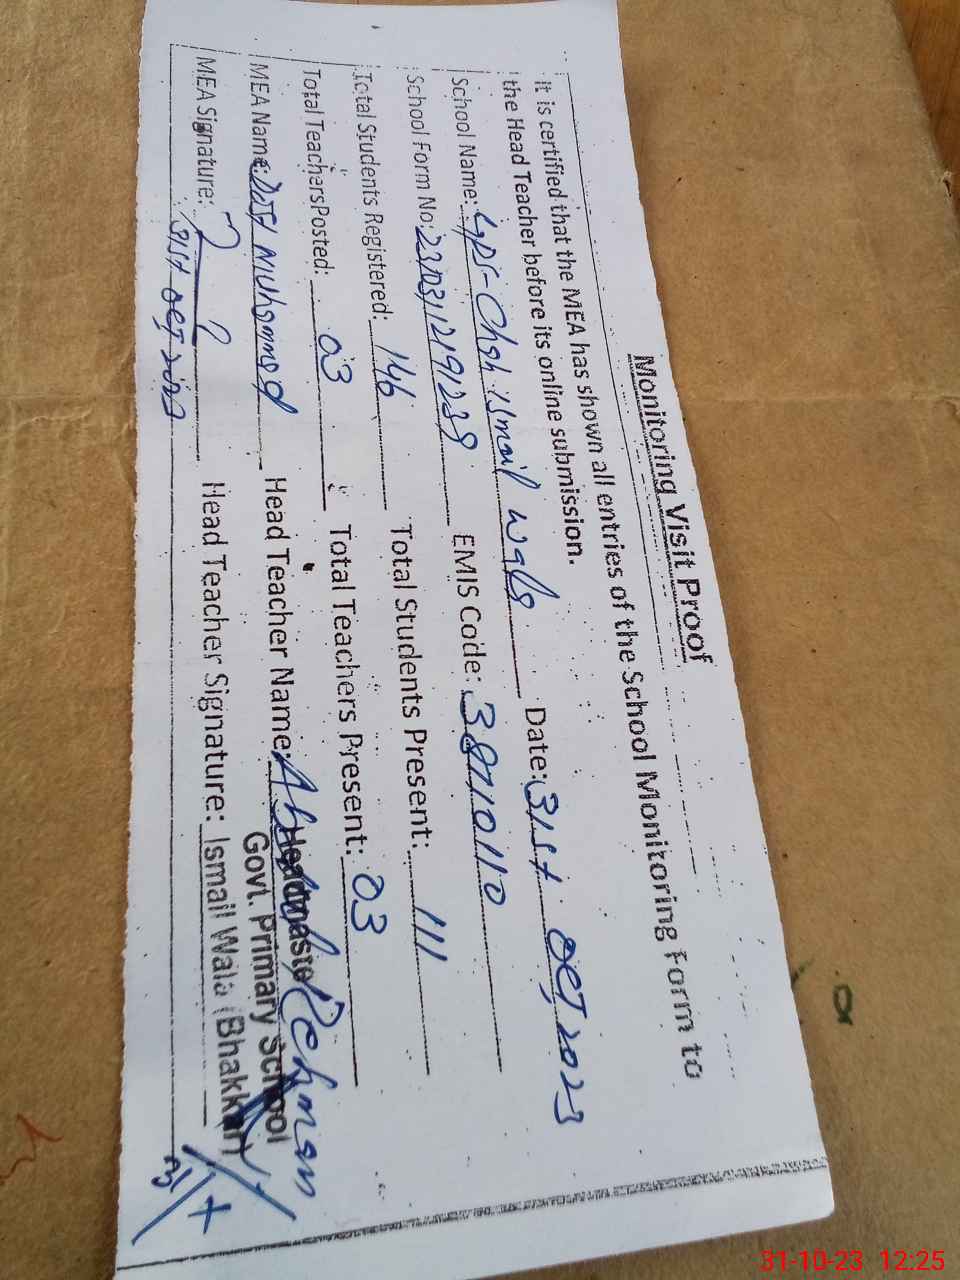 Monitoring Visit Proof
It is certified that the MEA has shown all entries of the School Monitoring Form to
the Head Teacher before its online submission.
School Name: Chah ismail wala Date: 31st OCT, 2023
School Form No: EMIS Code: 38710110
Total Students Registered: 146 Total Students Present: 111
Total Teachers Posted: 03 Total Teachers Present: 03
MEA Name: Muhammad Head Teacher Name: Rehman
Headmaster
Govt. Primary School
MEA Signature: Head Teacher Signature: Ismail Wala (Bhakkar)
31st OCT 2023
31-10-23 12:25